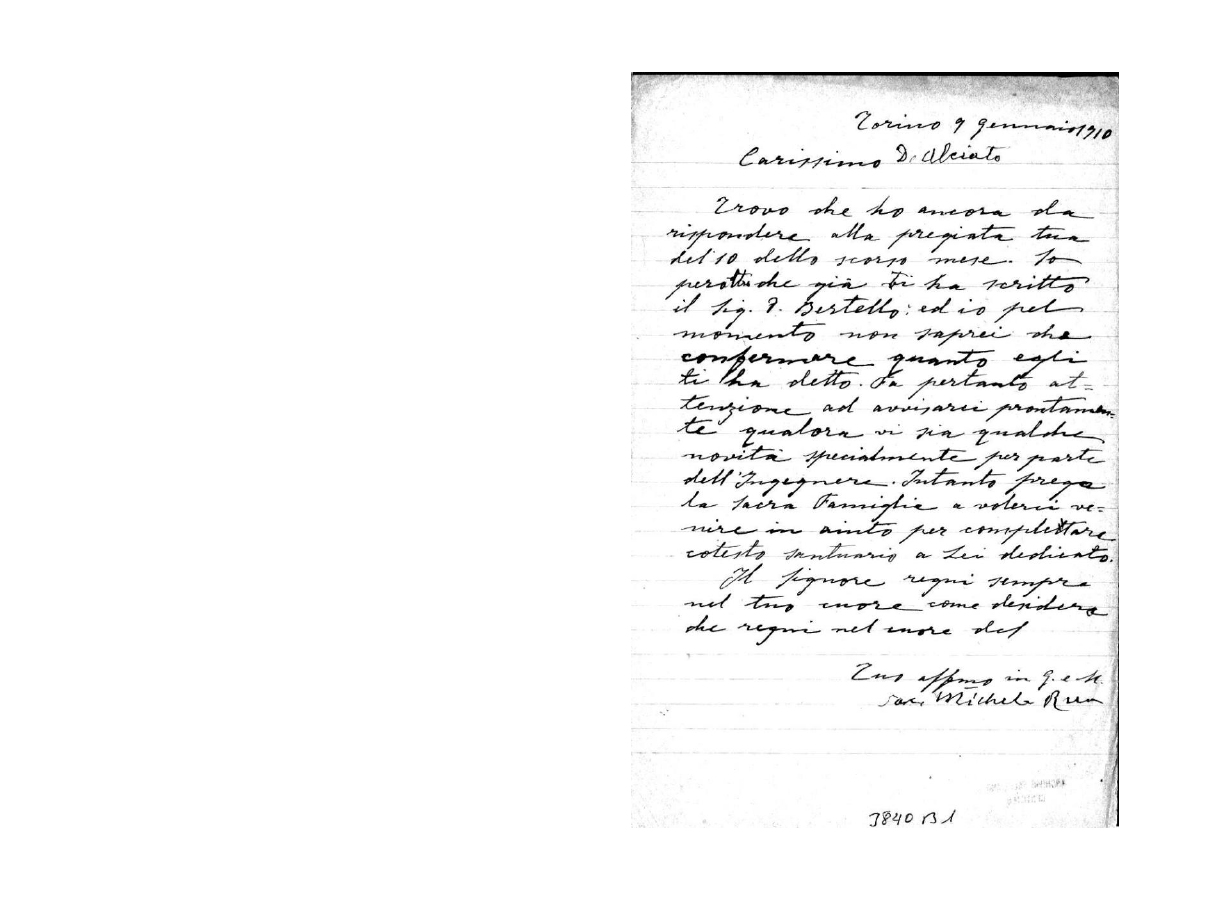 Torino 9 gennaio 1910
Carissimo D. Alciato
Trovo che ho ancora da
rispondere alla pregiata tua
del 10 dello scorso mese. So
però che già ti ha scritto
il Sig. D. Bertello: ed io pel
momento non saprei che
confermare quanto egli
ti ha detto. Fa pertanto at=
tenzione ad avvisarci prontamen=
te qualora vi sia qualche
novità specialmente per parte
dell'Ingegnere. Intanto prega
la Sacra Famiglia a volerci ve=
nire in aiuto per complettare
cotesto santuario a Lei dedicato.
Il Signore regni sempre
nel tuo cuore come desidera
che regni nel cuore del
Tuo affmo in G. e M.
Sac. Michele Rua
3840 B1